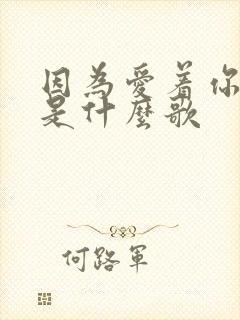 因為愛着你
是什麼歌
何路軍